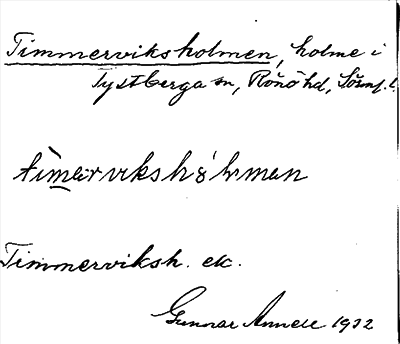 Timmerviksholmen, holme i
Tystberga sn, Rönö hd, Sörml.
Timmerviksh. etc.
Gunnar Annell 1932